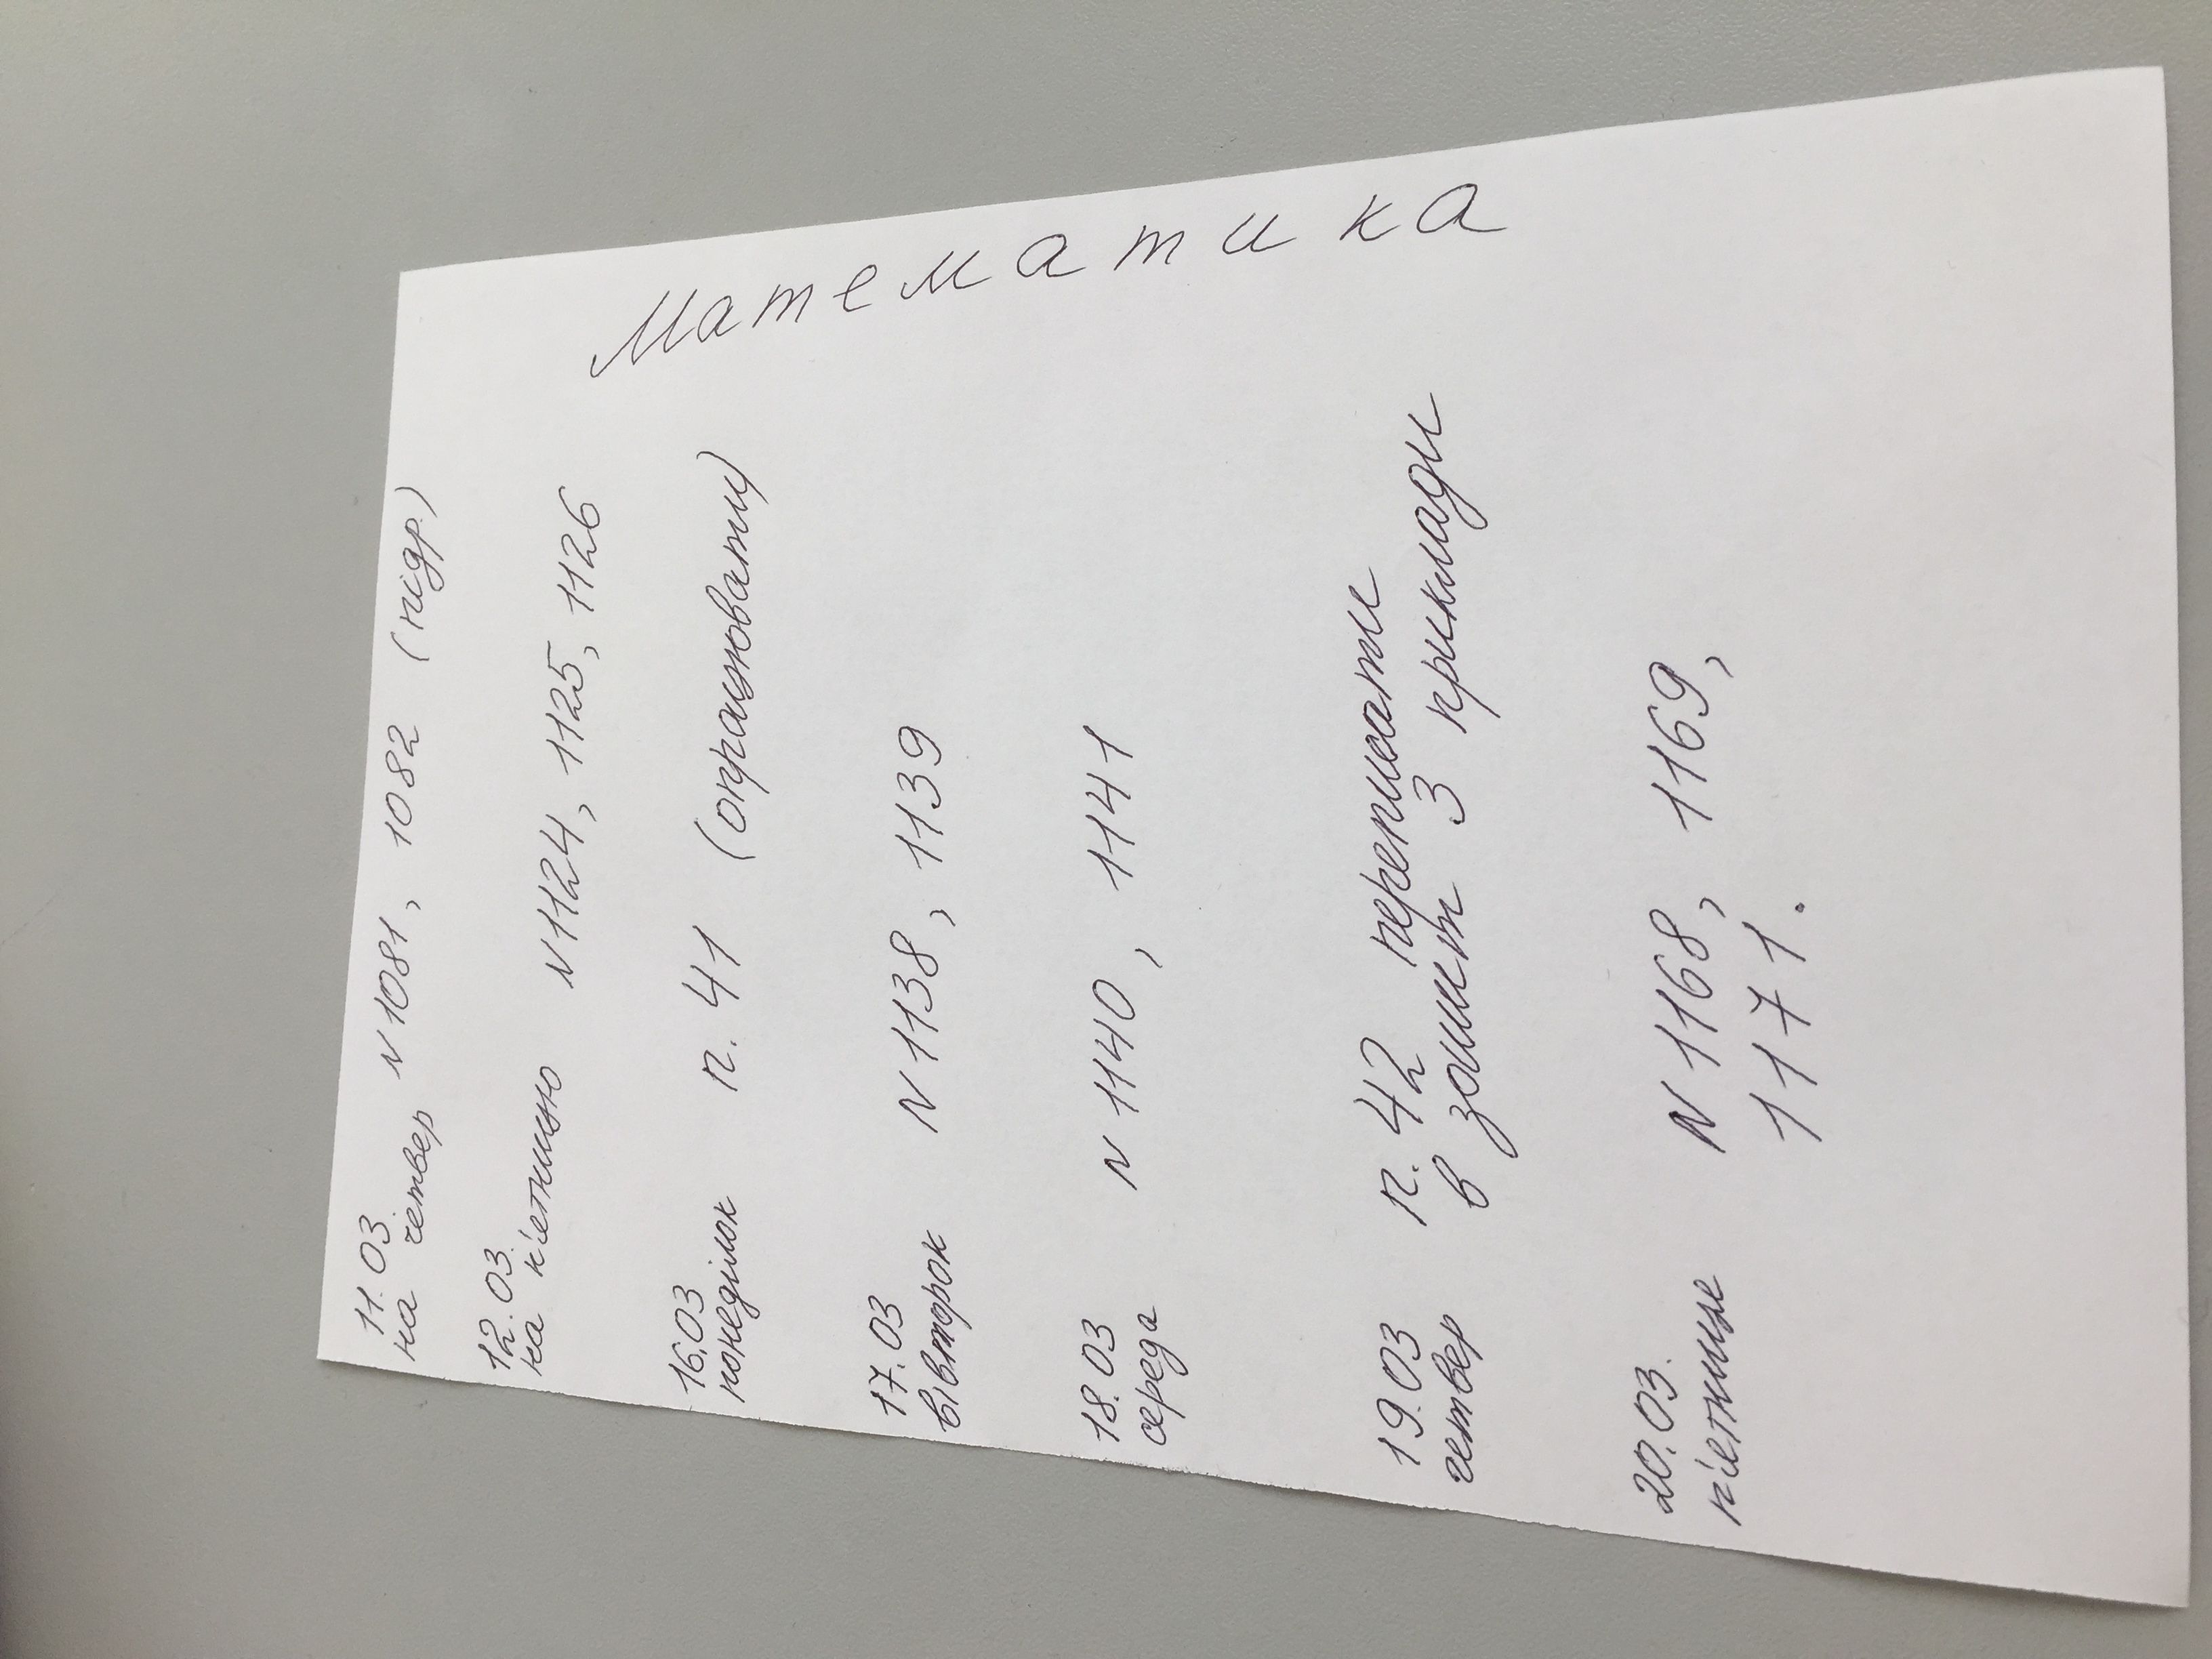 Математика
11.03. N 1081, 1082 (підр.)
на четвер
12.03. N 1124, 1125, 1126
на п'ятницю
16.03 п. 41 (опрацювати)
понеділок
17.03 N 1138, 1139
вівторок
18.03 N 1140, 1141
середа
19.03 п. 42 переписати
четвер в зошит 3 приклади
20.03. N 1168, 1169,
п'ятниця 1171.